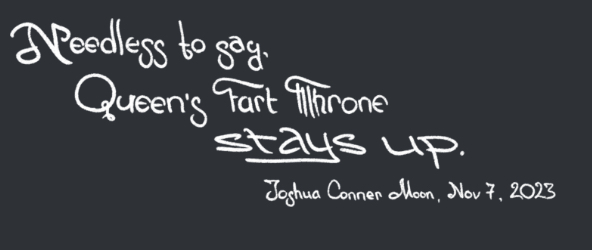 Needless to say,
Queen's Fart Throne
stays up.
Joshua Conner Moon, Nov 7, 2023